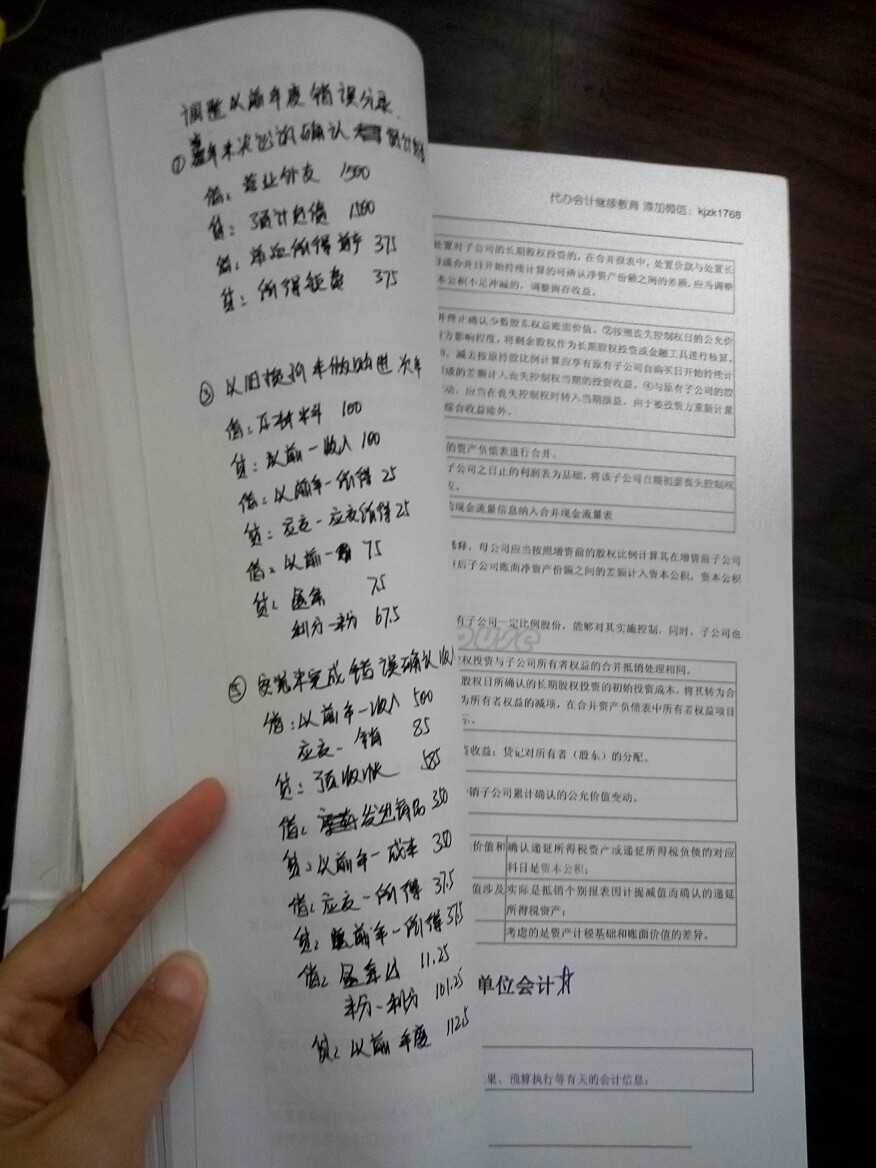 调整以前年度错误分录.
① 年未决诉讼确认
借：营业外支 1500
贷：预计负债 1500
借：递延所得资产 375
贷：所得税费 375
③ 以旧换新未做购进 次年
借：原材料 100
贷：以前一收入 100
借：以前年一所得 25
贷：应交一应交所得 25
借：以前一 75
贷：盈余 7.5
利分一未分 67.5
⑤ 安装未完成错误确认收入
借：以前年一收入 500
应交一销 85
贷：预收账 585
借：发出商品 350
贷：以前年一成本 350
借：应交一所得 37.5
贷：以前年一所得 37.5
借：盈余公 11.25
未分一利分 101.25
贷：以前年度 112.5
代办会计继续教育 添加微信：kjzk1768
处置对子公司的长期股权投资的，在合并报表中，处置价款与处置长
或合并日开始持续计算的可辨认净资产份额之间的差额，应当调整
本公积不足冲减的，调整留存收益。
终止确认少数股东权益账面价值。②按照丧失控制权日的公允价
方影响程度，将剩余股权作为长期股权投资或金融工具进行核算。
减去按原持股比例计算应享有原有子公司自购买日开始持续计
成的差额计入丧失控制权当期的投资收益，④与原有子公司的股
动，应当在丧失控制权时转入当期损益，由于被投资方重新计量
综合收益除外。
的资产负债表进行合并。
子公司之日止的利润表为基础，将该子公司自期初至丧失控制权
现金流量信息纳入合并现金流量表
稀释，母公司应当按照增资前的股权比例计算其在增资前子公司
后子公司账面净资产份额之间的差额计入资本公积，资本公积
有子公司一定比例股份，能够对其实施控制，同时，子公司也
ouse
权投资与子公司所有者权益的合并抵销处理相同。
股权日所确认的长期股权投资的初始投资成本，将其转为合
为所有者权益的减项，在合并资产负债表中所有者权益项目
示。
资收益；贷记对所有者（股东）的分配。
销子公司累计确认的公允价值变动。
价值和 确认递延所得税资产或递延所得税负债的对应
科目是资本公积；
值涉及 实际是抵销个别报表因计提减值而确认的递延
所得税资产；
考虑的是资产计税基础和账面价值的差异。
单位会计
果、预算执行等有关的会计信息；